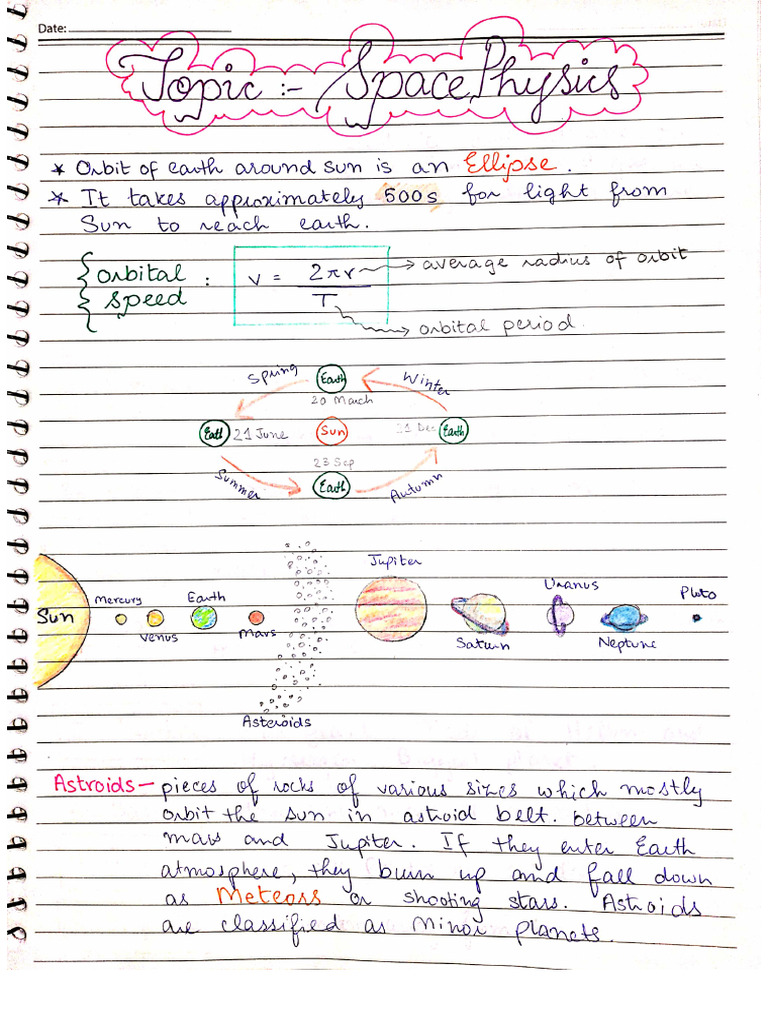 Date:
Topic :- Space Physics
* Orbit of earth around sun is an Ellipse.
* It takes approximately 500s for light from
Sun to reach earth.
orbital speed : v = 2πr / T
average radius of orbit
orbital period
Spring
Earth
Winter
20 March
Earth
21 June
Sun
21 Dec
Earth
23 Sep
Summer
Earth
Autumn
Sun
Mercury
Venus
Earth
Mars
Asteroids
Jupiter
Saturn
Uranus
Neptune
Pluto
Astroids — pieces of rocks of various sizes which mostly
orbit the sun in astroid belt. between
mars and Jupiter. If they enter Earth
atmosphere, they burn up and fall down
as Meteors or shooting stars. Astroids
are classified as Minor Planets.